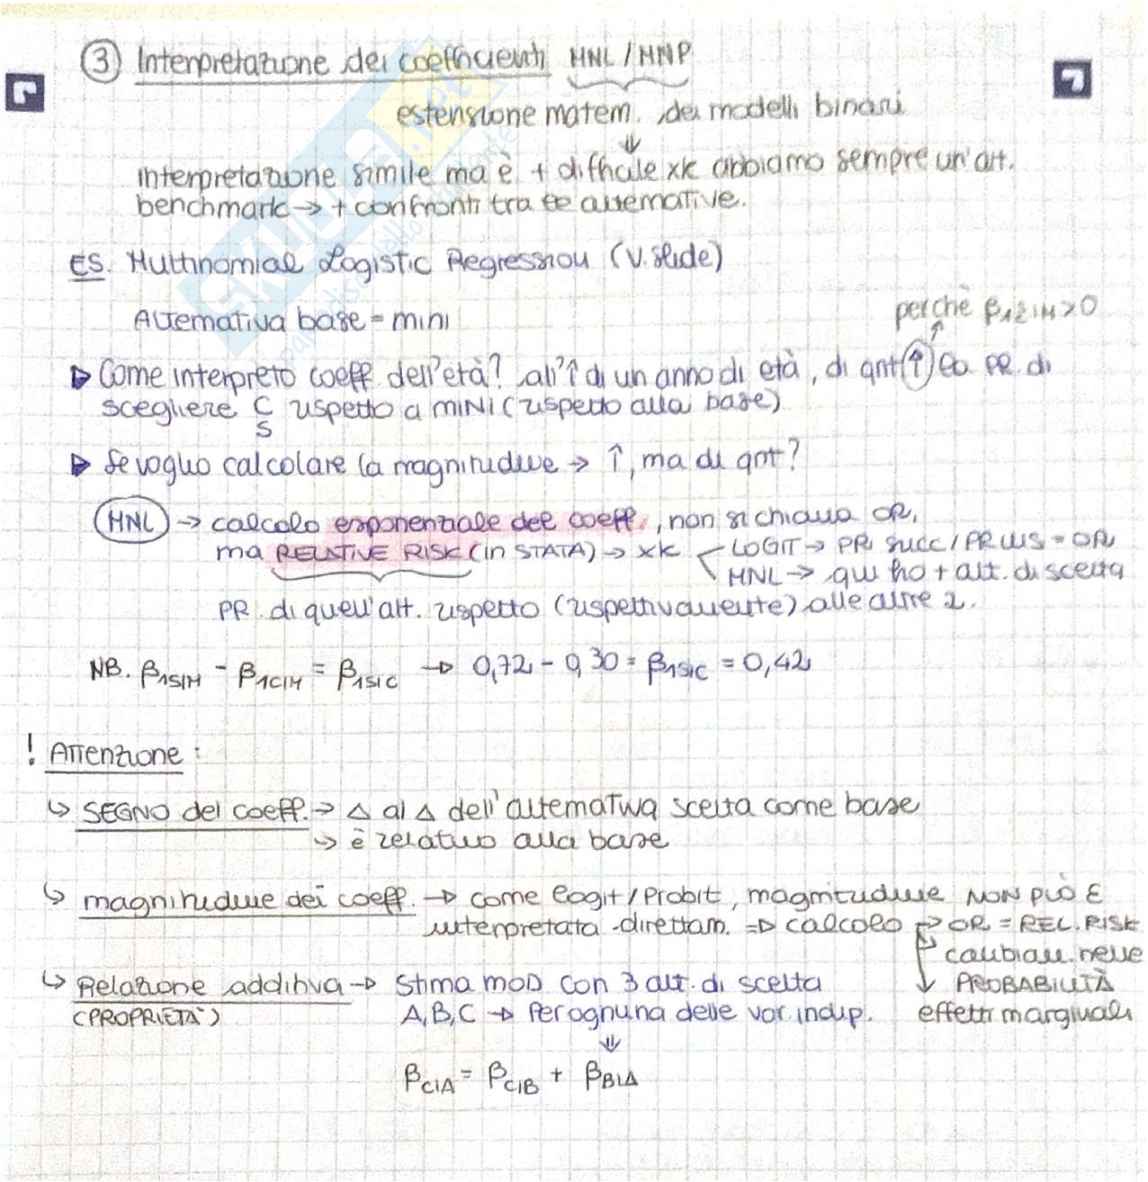 ③ Interpretazione dei coefficienti MNL / MNP
estensione matem. dei modelli binari
⇓
interpretazione simile ma è + difficile xk abbiamo sempre un'alt.
benchmark → + confronti tra le alternative.
ES. Multinomial Logistic Regression (v. slide)
Alternativa base = mini
perchè β1ZIM > 0
▷ Come interpreto coeff. dell'età? all'↑ di un anno di età, di qnt ↑ la PR. di
scegliere C rispetto a MINI (rispetto alla base)
S
▷ Se voglio calcolare la magnitudine → ↑, ma di qnt?
MNL → calcolo esponenziale del coeff., non si chiama OR,
ma RELATIVE RISK (in STATA) → xk LOGIT → PR succ / PR INS = OR
MNL → qui ho + alt. di scelta
PR. di quell'alt. rispetto (rispettivamente) alle altre 2.
NB. β1S|M - β1C|M = β1S|C → 0,72 - 0,30 = β1S|C = 0,42
! Attenzione :
↳ SEGNO del coeff. → Δ al Δ dell'alternativa scelta come base
↳ è relativo alla base
↳ magnitudine dei coeff. → come logit / Probit, magnitudine NON PUÒ E
interpretata direttam. ⇒ calcolo → OR = REL. RISK
cambiam. nelle
↳ Relazione additiva → Stima MOD con 3 alt. di scelta ↓ PROBABILITÀ
(PROPRIETÀ) A, B, C → Per ognuna delle var. indip. effetti marginali
⇓
βC|A = βC|B + βB|A